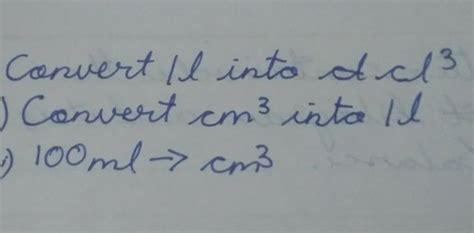 Convert 1l into d cl³
) Convert cm³ into 1l
i) 100ml → cm³